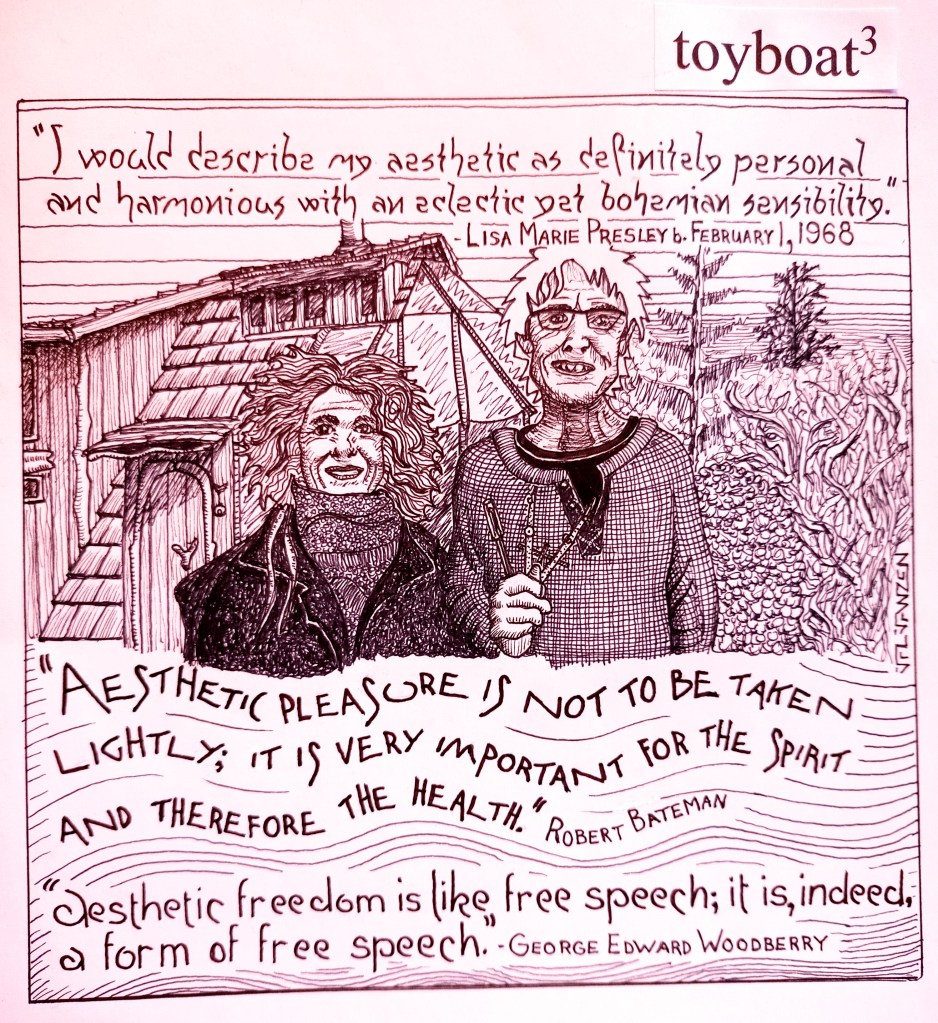 toyboat³
"I would describe my aesthetic as definitely personal
and harmonious with an eclectic yet bohemian sensibility."
-LISA MARIE PRESLEY b. FEBRUARY 1, 1968
"AESTHETIC PLEASURE IS NOT TO BE TAKEN
LIGHTLY; IT IS VERY IMPORTANT FOR THE SPIRIT
AND THEREFORE THE HEALTH." ROBERT BATEMAN
"Aesthetic freedom is like free speech; it is, indeed,
a form of free speech." -GEORGE EDWARD WOODBERRY